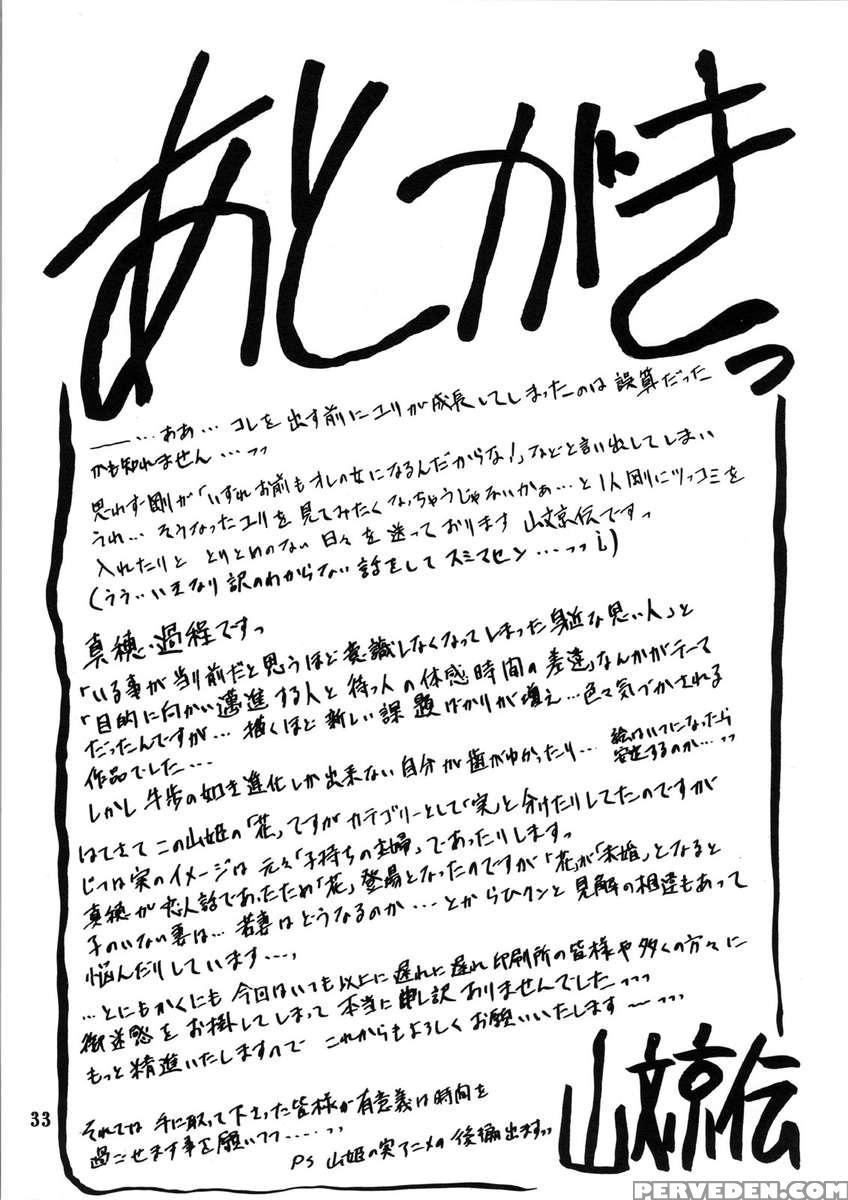 あとがきっ
――…ああ… コレを出す前にユリが成長してしまったのは誤算だった
かも知れません…っっ
思わず剛が「いずれお前もオレの女になるんだからな!」などと言い出してしまい
うわ… そうなったユリを見てみたくなっちゃうじゃないかぁ…と1人剛にツッコミを
入れたりと とりとめのない日々を送っております 山文京伝ですっ
(うぅ…いきなり訳のわからない話をして スミマセン…っっ
真穂・過程ですっ
「いる事が当り前だと思うほど意識しなくなってしまった身近な思い人」と
「目的に向かい邁進する人と待つ人の体感時間の差違」なんかがテーマ
だったんですが… 描くほど新しい課題ばかりが増え…色々気づかされる
作品でした…
しかし牛歩の如き進化しか出来ない自分が歯がゆかったり…
絵はいつになったら
安定するのか…っっ
はてさて この山姫の「花」ですが カテゴリーとして「実」と分けたりしてたのですが
じつは実のイメージは 元々「子持ちの主婦」であったりしますっ
真穂が恋人話であったため「花」登場となったのですが「花」が「未婚」となると
子のいない妻は… 若妻はどうなるのか…とからひクンと見解の相違もあって
悩んだりしています…っ
…とにもかくにも 今回はいつも以上に遅れに遅れ印刷所の皆様や多くの方々に
御迷惑をお掛してしまって 本当に申し訳ありませんでしたっっっ
もっと精進いたしますので これからもよろしくお願いいたします〜っっっ
それでは 手に取って下さった皆様が有意義な時間を
過ごせます事を願いつつ……っっ
PS 山姫の実アニメの後編出ますっっ
山文京伝
33
PERVEDEN.COM